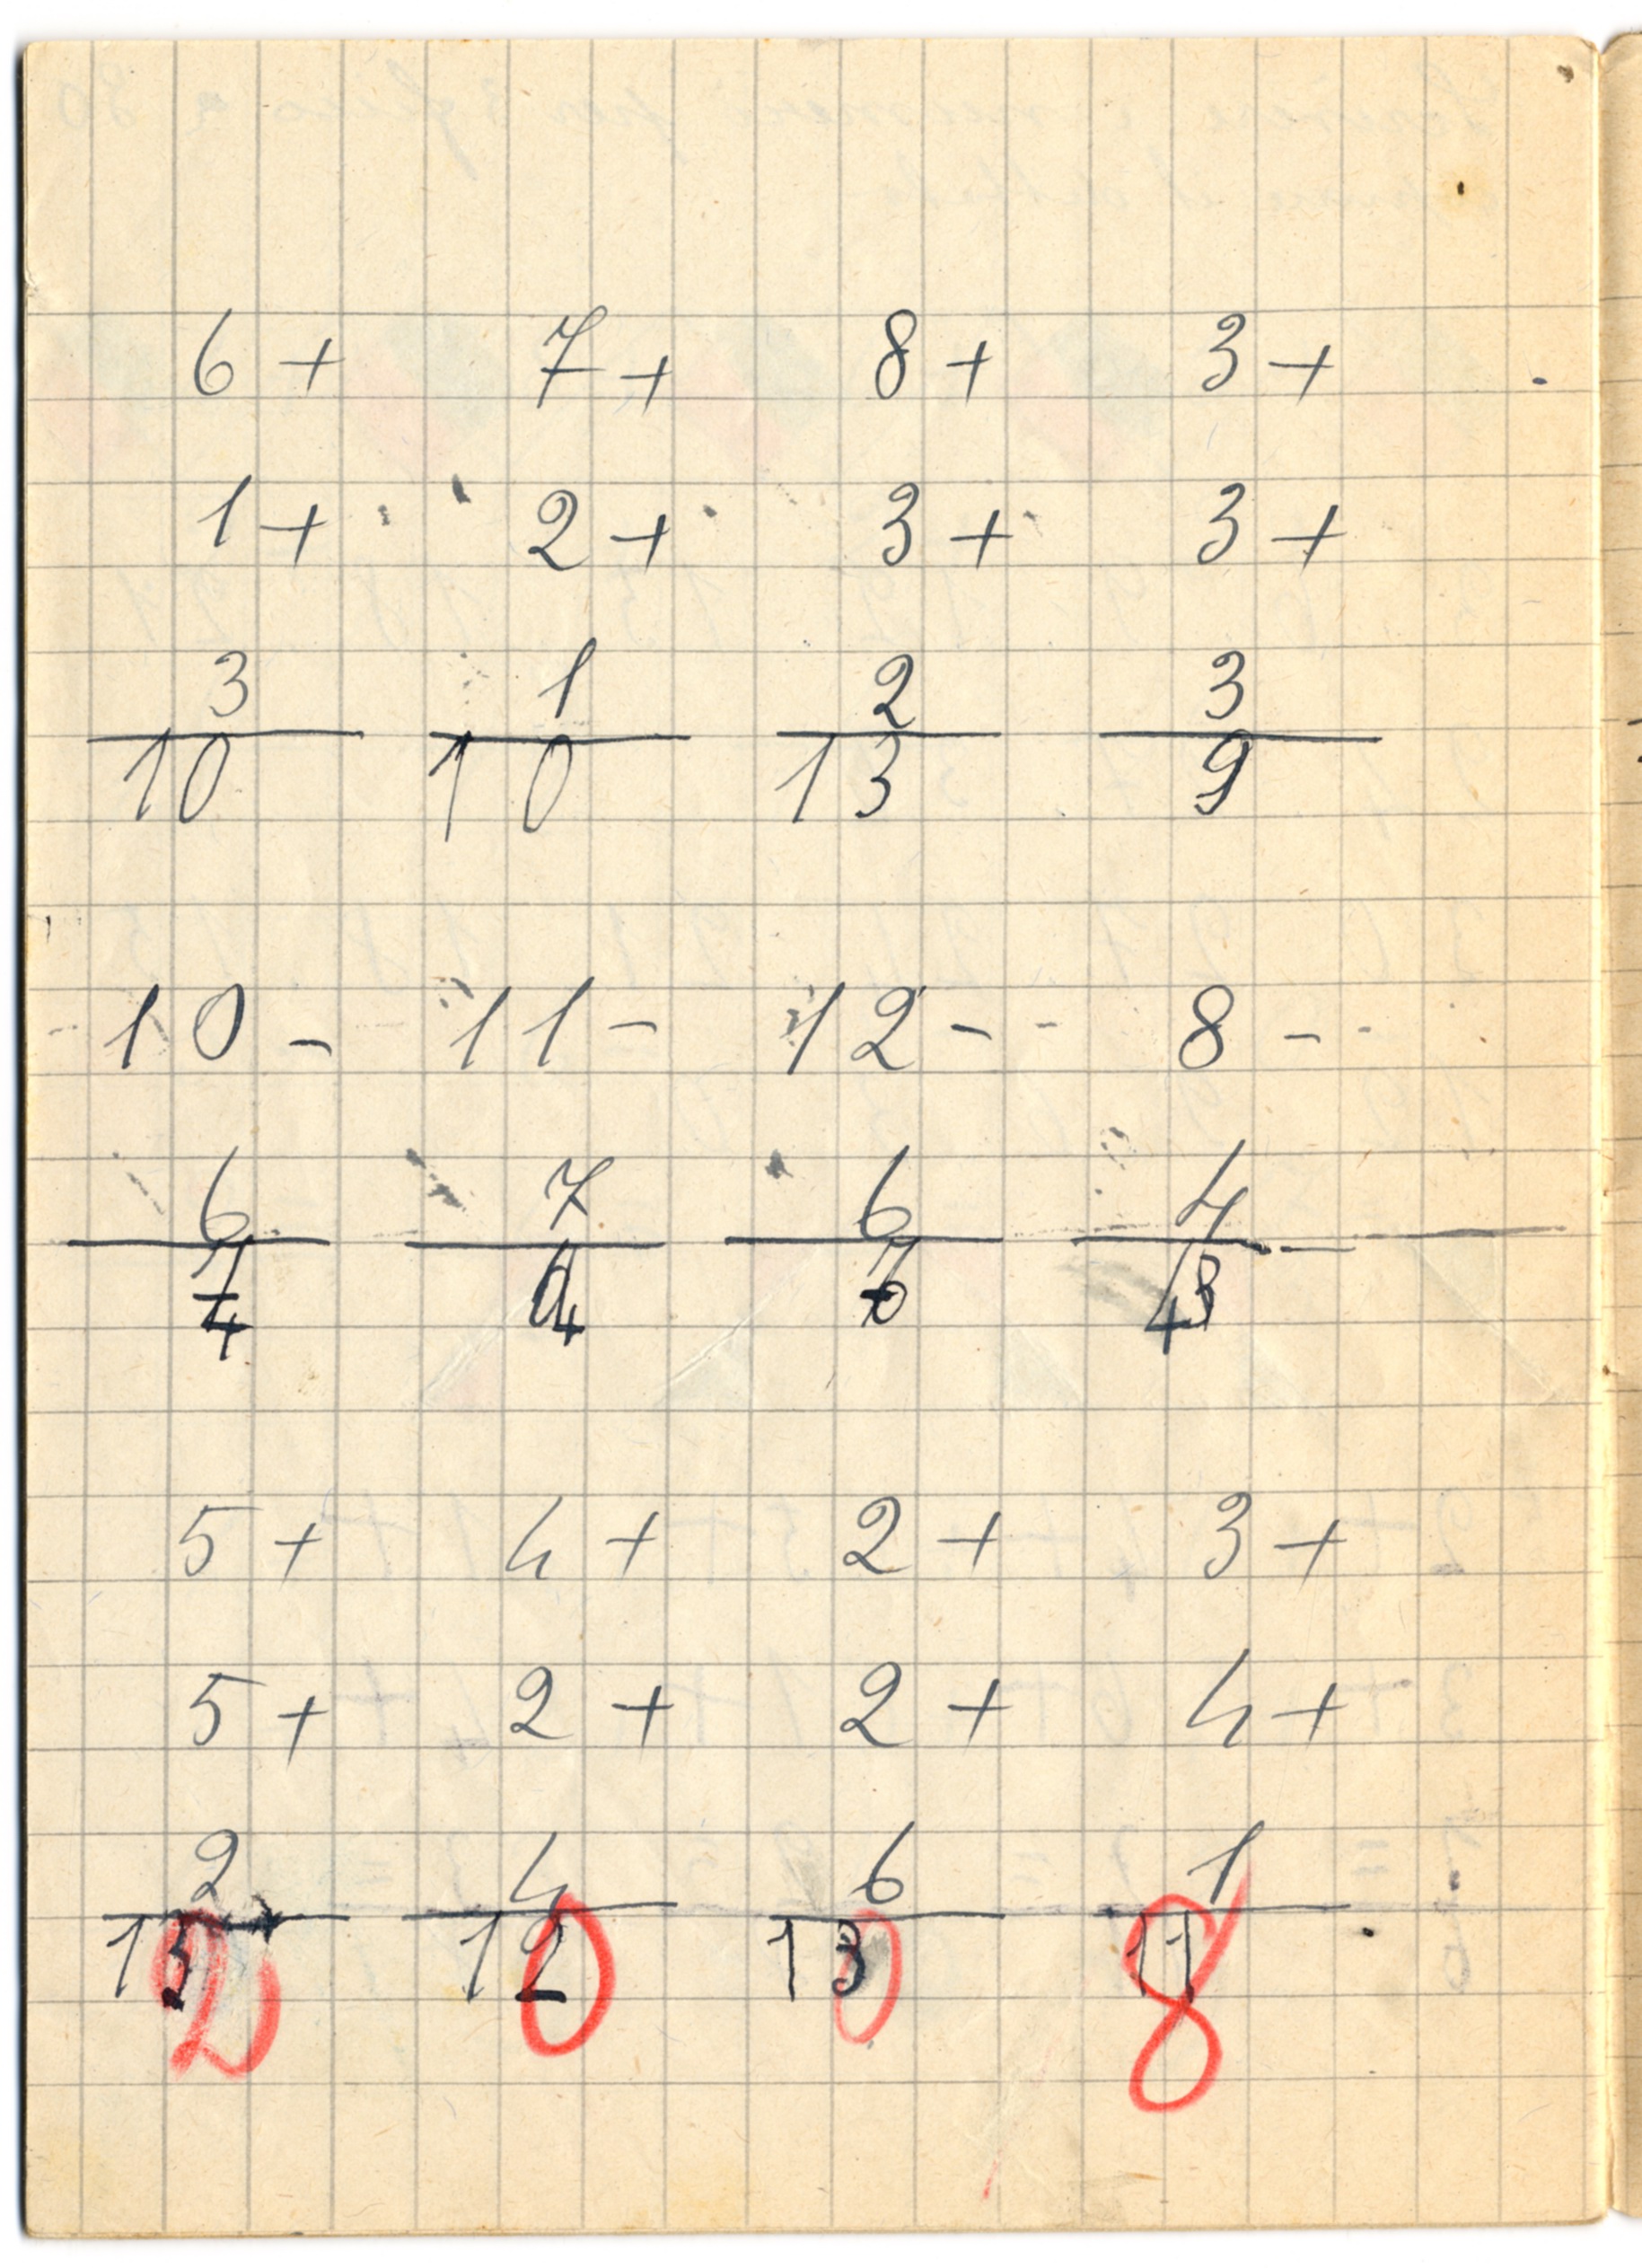 6 + 7 + 8 + 3 +
1 + 2 + 3 + 3 +
3 1 2 3
10 10 13 9
10 - 11 - 12 - 8 -
6 7 6 4
4 4 6 4
5 + 4 + 2 + 3 +
5 + 2 + 2 + 4 +
2 4 6 1
13 12 13 11
2 0 0 8